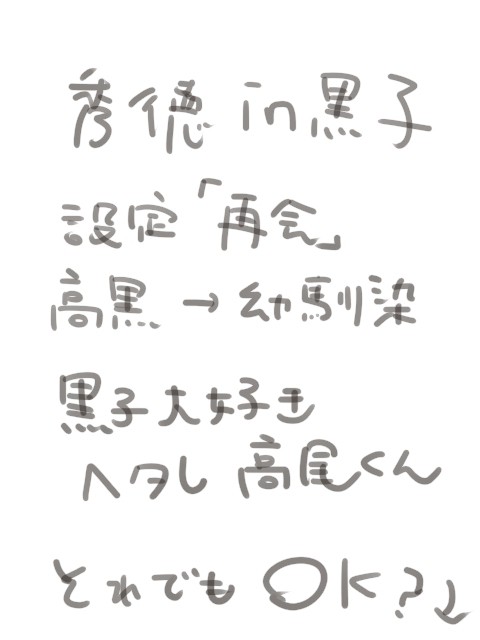 秀徳in黒子
設定「再会」
高黒→幼馴染
黒子大好き
ヘタレ高尾くん
それでもOK?↓